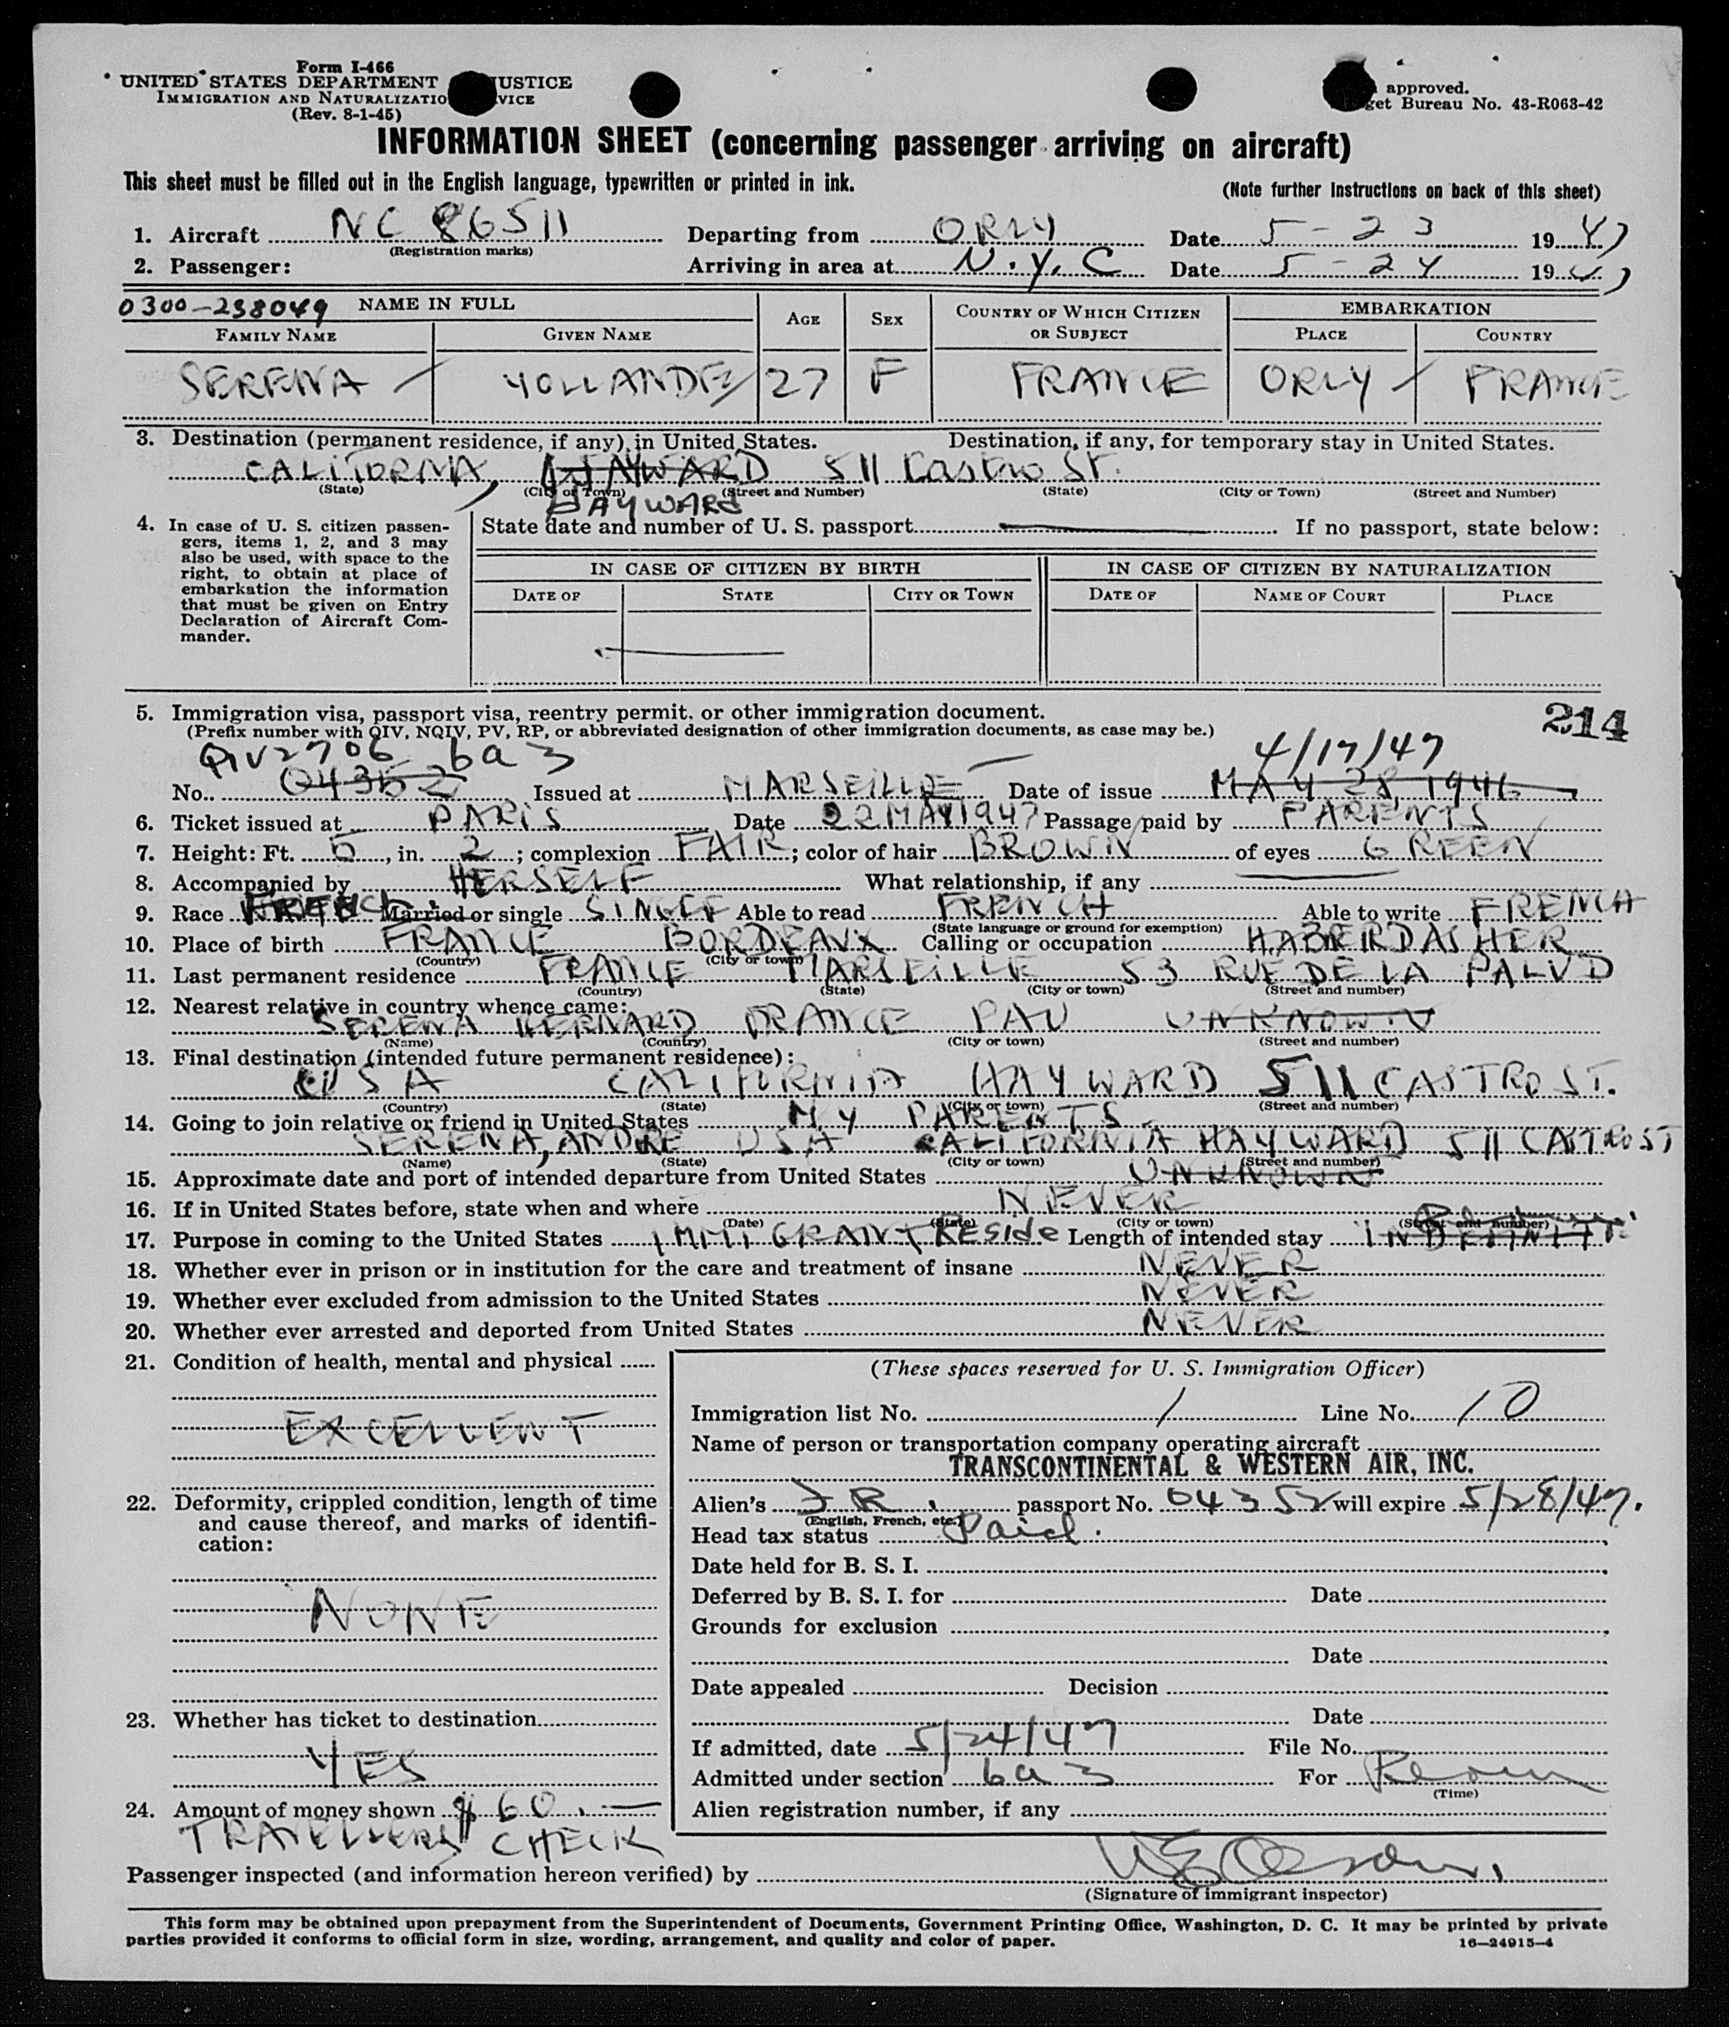 Form I-466
UNITED STATES DEPARTMENT JUSTICE
IMMIGRATION AND NATURALIZATIO VICE
(Rev. 8-1-45)
approved.
get Bureau No. 43-R063-42
INFORMATION SHEET (concerning passenger arriving on aircraft)
This sheet must be filled out in the English language, typewritten or printed in ink.
(Note further instructions on back of this sheet)
1. Aircraft NC 86511 Departing from ORLY Date 5-23 1947
(Registration marks)
2. Passenger: Arriving in area at N.Y.C Date 5-24 1947
0300-238049 NAME IN FULL AGE SEX COUNTRY OF WHICH CITIZEN OR SUBJECT EMBARKATION
FAMILY NAME GIVEN NAME PLACE COUNTRY
SERENA YOLLANDE 27 F FRANCE ORLY FRANCE
3. Destination (permanent residence, if any) in United States. Destination, if any, for temporary stay in United States.
CALIFORNIA, HAYWARD 511 Castro St.
(State) (City or Town) (Street and Number) (State) (City or Town) (Street and Number)
HAYWARD
4. In case of U. S. citizen passen-
gers, items 1, 2, and 3 may
also be used, with space to the
right, to obtain at place of
embarkation the information
that must be given on Entry
Declaration of Aircraft Com-
mander.
State date and number of U. S. passport If no passport, state below:
IN CASE OF CITIZEN BY BIRTH IN CASE OF CITIZEN BY NATURALIZATION
DATE OF STATE CITY OR TOWN DATE OF NAME OF COURT PLACE
5. Immigration visa, passport visa, reentry permit, or other immigration document.
(Prefix number with QIV, NQIV, PV, RP, or abbreviated designation of other immigration documents, as case may be.)
214
QIV2706 6a3 4/17/47
No. 04352 Issued at MARSEILLE Date of issue MAY 28, 1946
6. Ticket issued at PARIS Date 22 MAY 1947 Passage paid by PARENTS
7. Height: Ft. 5, in. 2; complexion FAIR; color of hair BROWN of eyes GREEN
8. Accompanied by HERSELF What relationship, if any
9. Race FRENCH Married or single SINGLE Able to read FRENCH Able to write FRENCH
(State language or ground for exemption)
10. Place of birth FRANCE BORDEAUX Calling or occupation HABERDASHER
(Country) (City or town)
11. Last permanent residence FRANCE MARSEILLE 53 RUE DE LA PALUD
(Country) (State) (City or town) (Street and number)
12. Nearest relative in country whence came:
SERENA BERNARD FRANCE PAU UNKNOWN
(Name) (Country) (City or town) (Street and number)
13. Final destination (intended future permanent residence):
USA CALIFORNIA HAYWARD 511 CASTRO ST.
(Country) (State) (City or town) (Street and number)
14. Going to join relative or friend in United States MY PARENTS
SERENA, ANDRE USA CALIFORNIA HAYWARD 511 CASTRO ST
(Name) (State) (City or town) (Street and number)
15. Approximate date and port of intended departure from United States UNKNOWN
16. If in United States before, state when and where NEVER
(Date) (State) (City or town) (Street and number)
17. Purpose in coming to the United States IMMIGRANT Reside Length of intended stay INDEFINIT
18. Whether ever in prison or in institution for the care and treatment of insane NEVER
19. Whether ever excluded from admission to the United States NEVER
20. Whether ever arrested and deported from United States NEVER
21. Condition of health, mental and physical
EXCELLENT
22. Deformity, crippled condition, length of time
and cause thereof, and marks of identifi-
cation:
NONE
23. Whether has ticket to destination
YES
24. Amount of money shown $60.—
TRAVELLERS CHECK
(These spaces reserved for U. S. Immigration Officer)
Immigration list No. 1 Line No. 10
Name of person or transportation company operating aircraft
TRANSCONTINENTAL & WESTERN AIR, INC.
Alien's FR. passport No. 04352 will expire 5/28/47.
(English, French, etc.)
Head tax status Paid.
Date held for B. S. I.
Deferred by B. S. I. for Date
Grounds for exclusion
Date
Date appealed Decision
Date
If admitted, date 5/24/47 File No.
Admitted under section 6a3 For Perm
(Time)
Alien registration number, if any
Passenger inspected (and information hereon verified) by
(Signature of immigrant inspector)
This form may be obtained upon prepayment from the Superintendent of Documents, Government Printing Office, Washington, D. C. It may be printed by private
parties provided it conforms to official form in size, wording, arrangement, and quality and color of paper.
16—24915-4